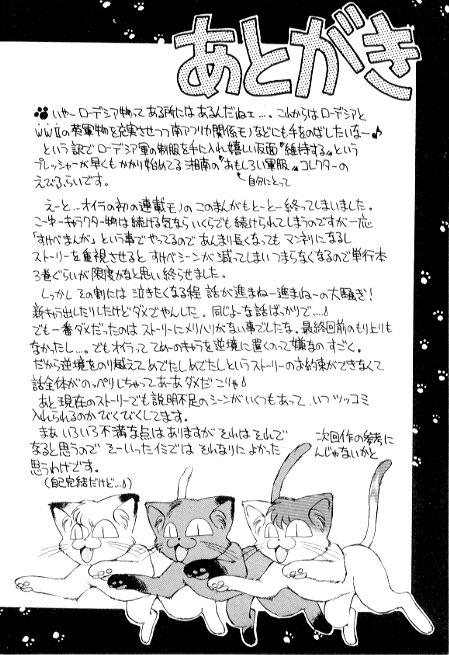 あとがき
いやーローデシア物ってある所にはあるんだねェ…。これからはローデシアと
WWⅡの英軍物を充実させつつ南アフリカ関係モノなどにも手をのばしたいなー♪
という訳でローデシア軍の制服を手に入れ嬉しい反面"維持する"という
プレッシャーが早くもかかり始めてる湘南の"おもしろい軍服"コレクターの
えびふらいです。
自分にとって
えーと…オイラの初の連載モノのこのまんがもとーとー終ってしまいました。
こーゆーキャラクター物は続ける気ならいくらでも続けられてしまうのですが一応
「すけべまんが」という事でやってるのであんまり長くなってもマンネリになるし
ストーリーを重視させるとすけべシーンが減ってしまいつまらなくなるので単行本
3巻ぐらいが限度かなと思い終らせました。
しっかしその割には泣きたくなる程話が進まねー進まねーの大騒ぎ!
新キャラ出したりしたけどダメでやんした。同じよーな話ばっかりで…♪
でも一番ダメだったのはストーリーにメリハリがない事でしたな。最終回前のもり上りも
なかったし…。でもオイラっててめーのキャラを逆境に置くのって嫌なのすごく。
だから逆境をのり越えてめでたしめでたしというストーリーのお約束ができなくて
話全体がのっぺりしちゃってあーあダメだこりゃ♪
あと現在のストーリーでも説明不足のシーンがいくつもあって、いつツッコミ
入れられるのかびくびくしてます。
まあいろいろ不満な点はありますがそれはそれで次回作の参考に
なると思うのでそーいったイミではそれなりによかったんじゃないかと
思うわけです。
(自己完結だけど…♪)